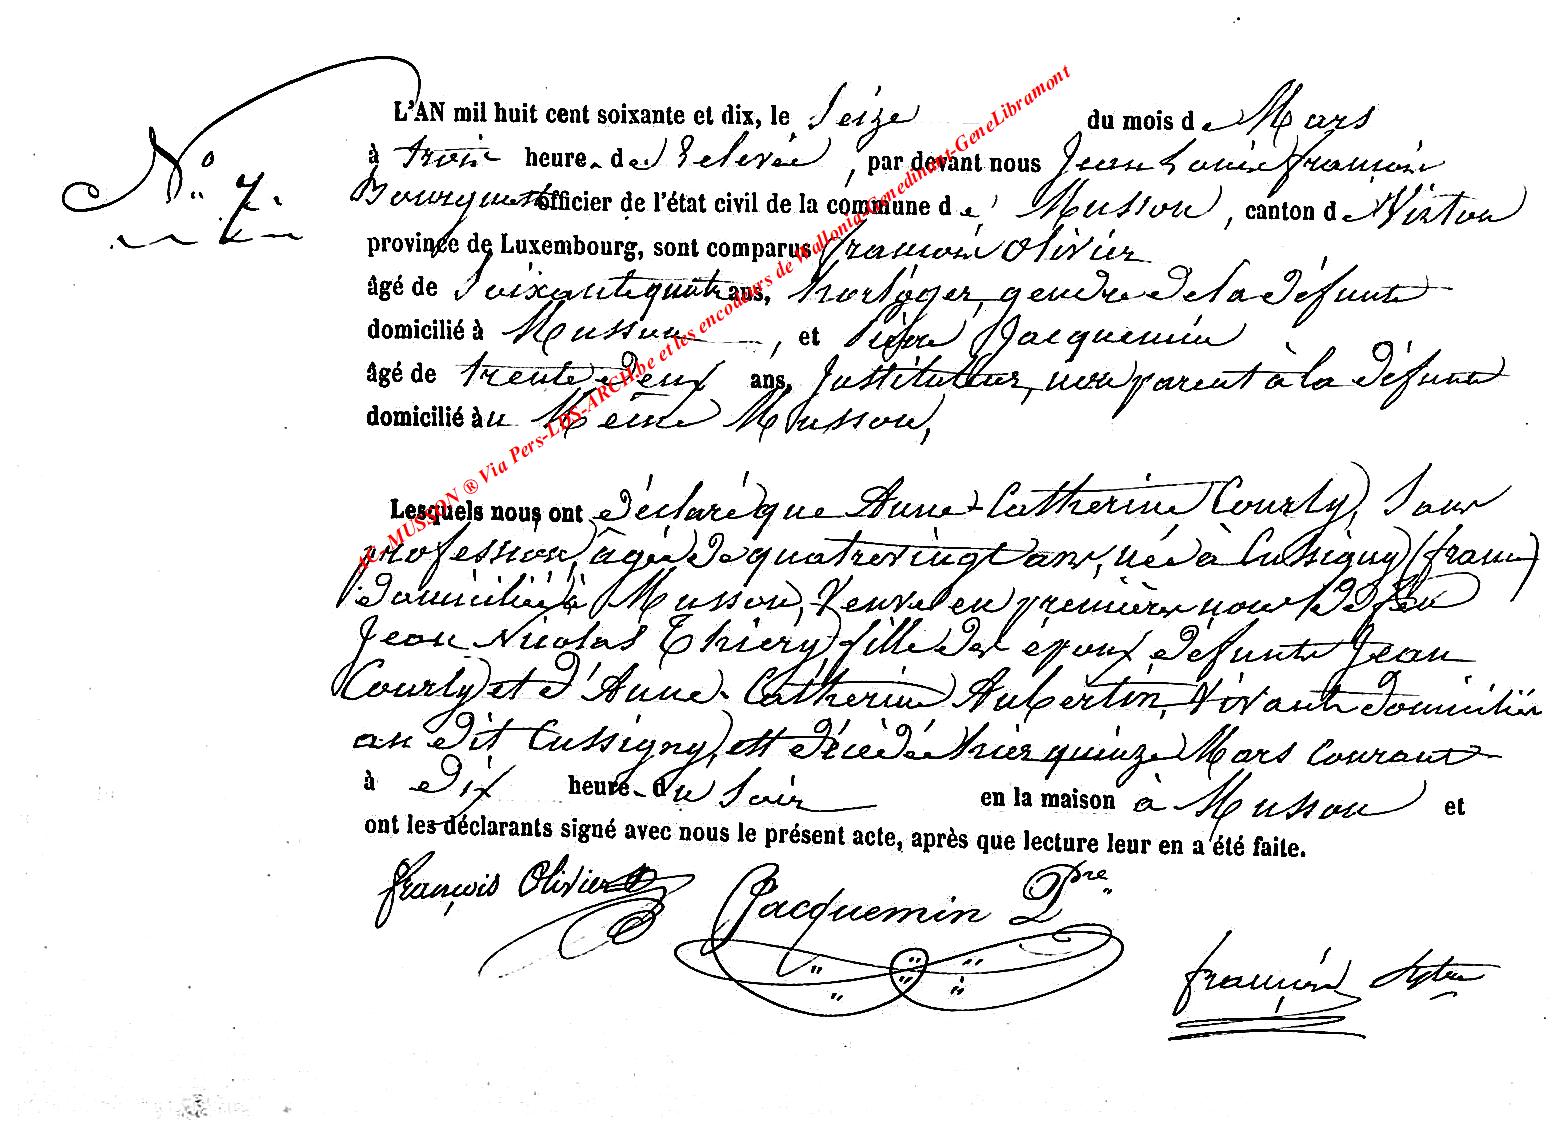 N° 7.
L'AN mil huit cent soixante et dix, le Seize du mois de Mars
à trois heures de Relevée, par devant nous Jean Louis françois
officier de l'état civil de la commune de Musson, canton de Virton
province de Luxembourg, sont comparus françois Olivier
âgé de Soixante quatre ans, horloger, gendre de la défunte
domicilié à Musson, et Pierre Jacquemin
âgé de trente deux ans, Instituteur, non parent à la défunte
domicilié au Même Musson,
Lesquels nous ont déclaré que Anne-Catherine Courly, Sans
profession, âgée de quatrevingt ans, née à Cussigny (france)
domiciliée à Musson, Veuve en premières noces de feu
Jean Nicolas Thiéry, fille des époux défunts Jean
Courly et d'Anne-Catherine Aubertin, vivant domiciliés
au dit Cussigny, est décédée hier quinze Mars courant
à dix heures du Soir en la maison à Musson et
ont les déclarants signé avec nous le présent acte, après que lecture leur en a été faite.
françois Olivier Jacquemin Pre
françois
MUSSON ® Via Pers-LDS-ARCH.be et les encodeurs de Wallonia-Genedinant-GeneLibramont